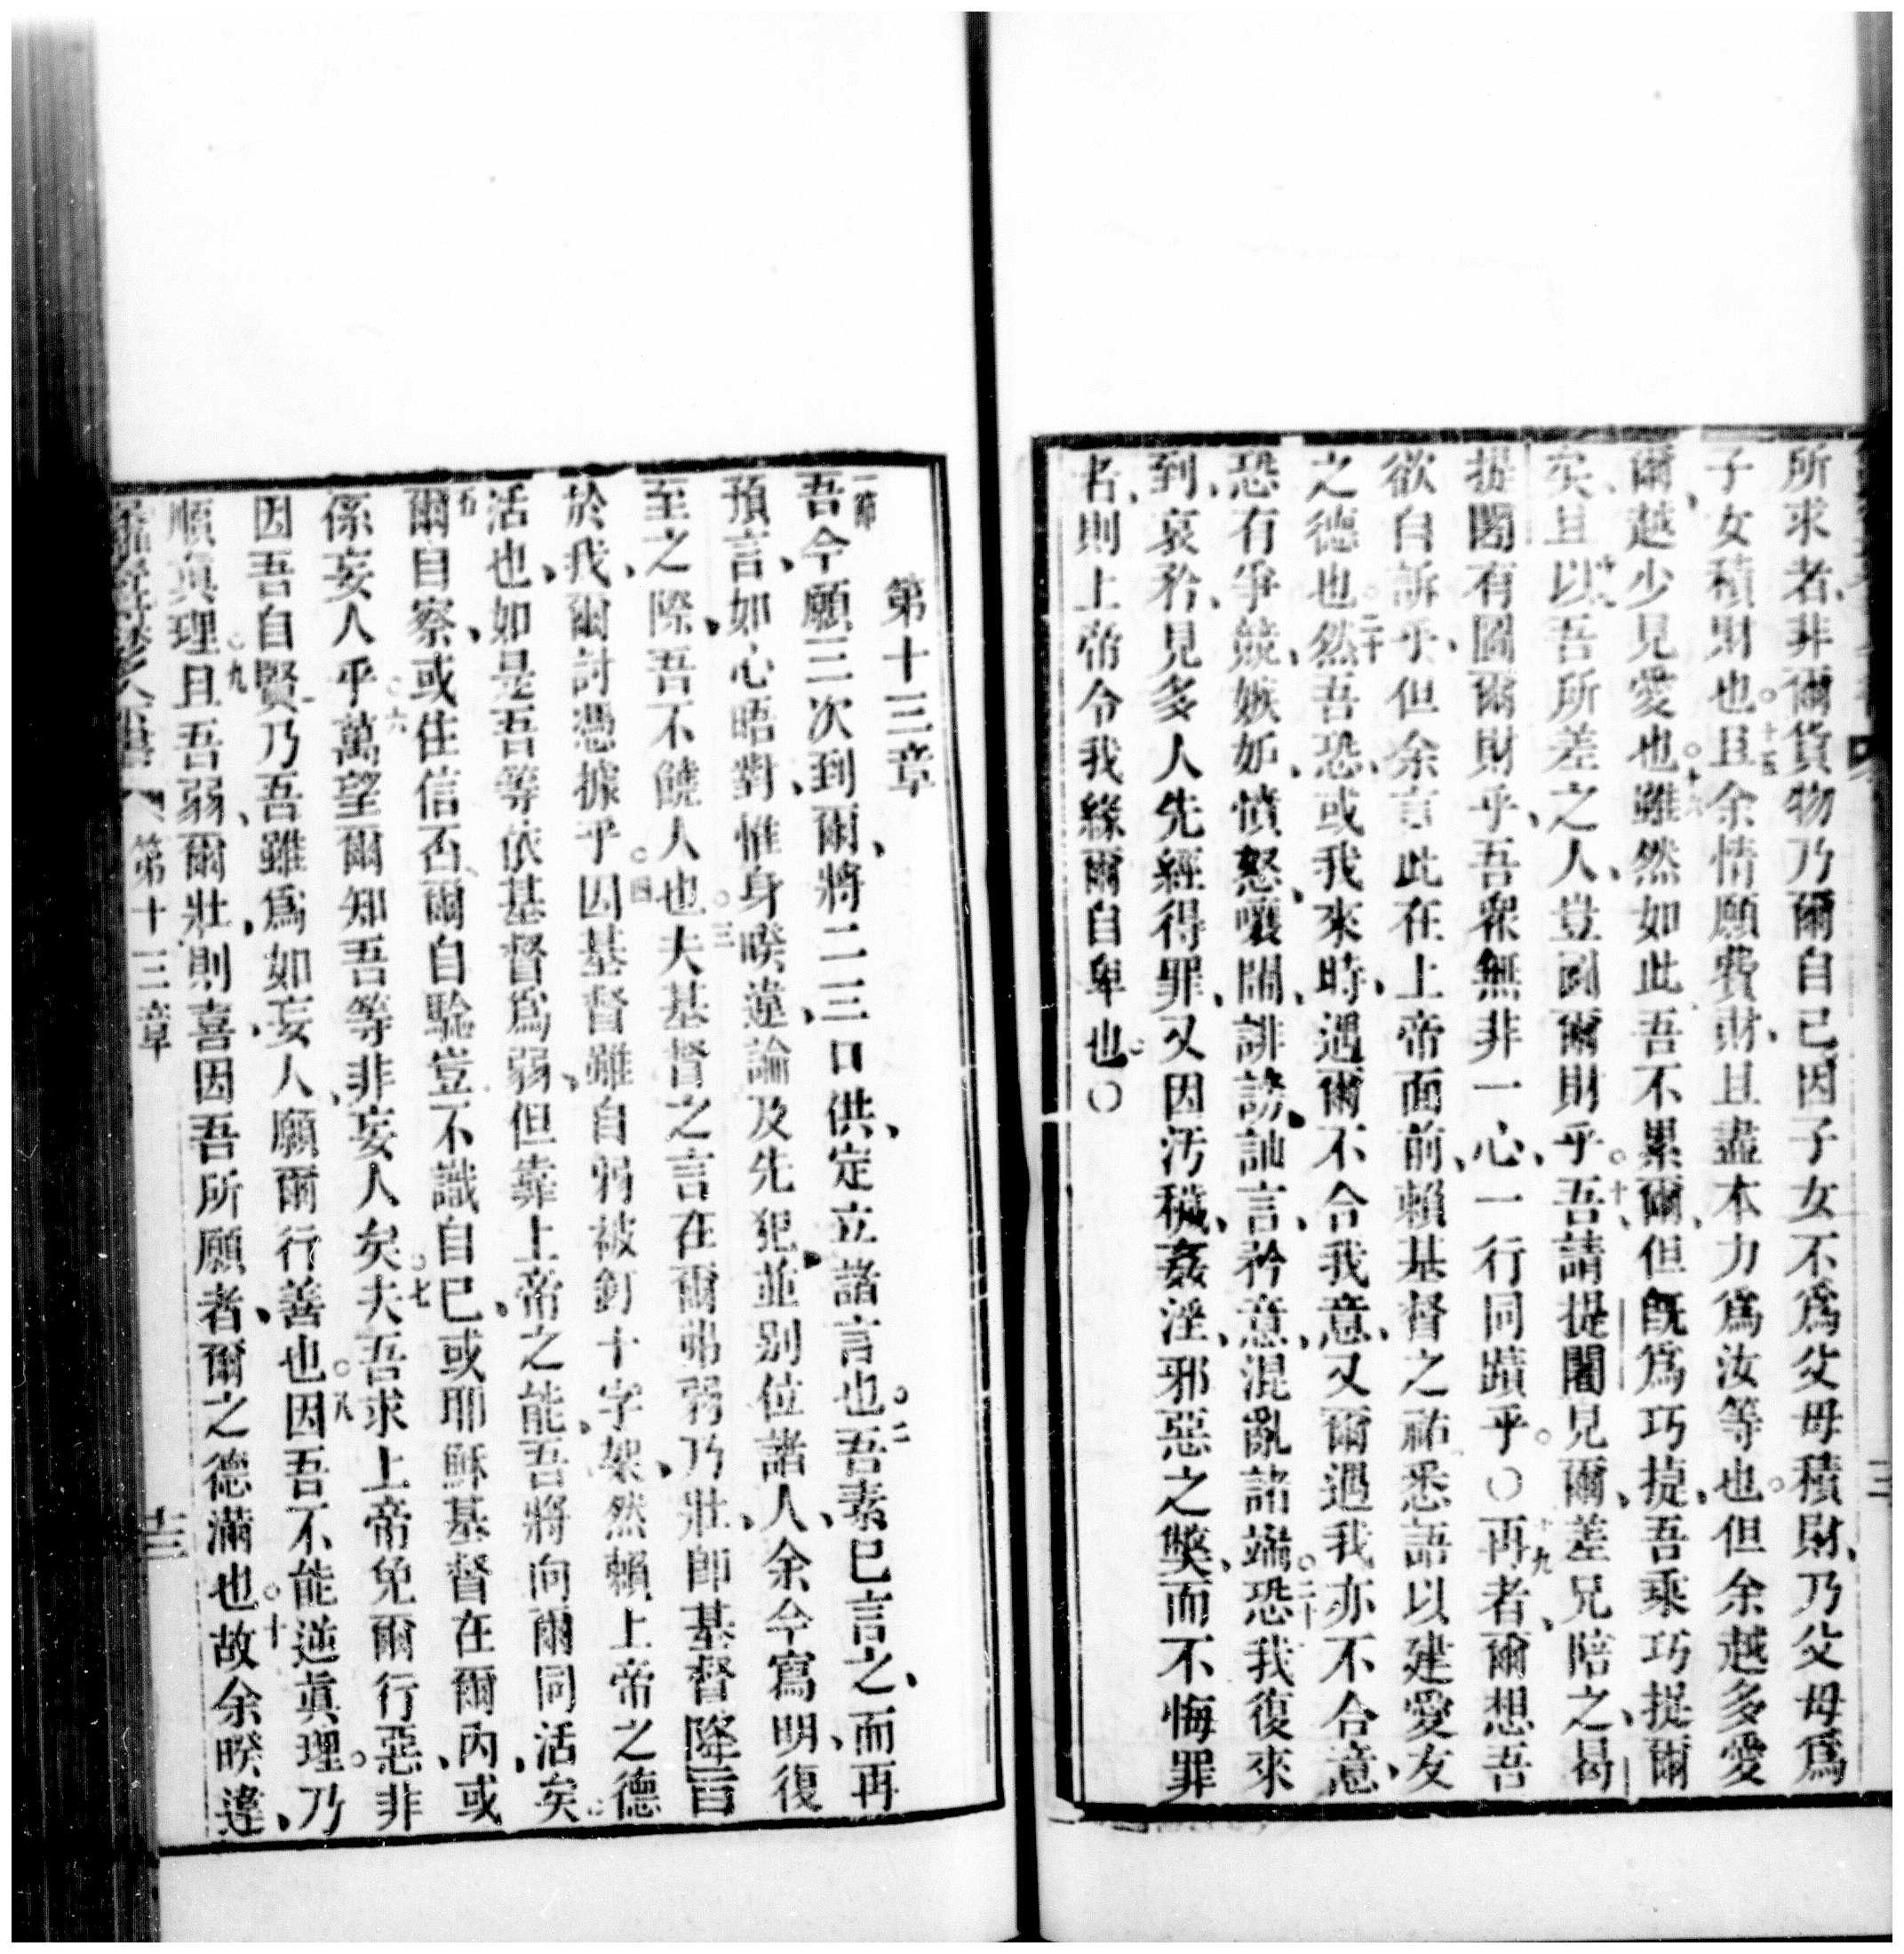 所求者、非爾貨物乃爾自己因子女不爲父母積財、乃父母爲
子女積財也。十五且余情願費財、且盡本力爲汝等也。但余越多愛
爾、越少見愛也。十六雖然如此吾不累爾、但旣爲巧捷、吾乘巧捉爾
矣、且以吾所差之人、豈圖爾財乎。十吾請提闍見爾、差兄陪之、曷
提闍有圖爾財乎、吾衆無非一心、一行同蹟乎。〇十九再者、爾想吾
欲自訴乎、但余言此在上帝面前、賴基督之祐悉語以建愛友
之德也。二十然吾恐、或我來時、遇爾不合我意、又爾遇我亦不合意、
恐有爭競、嫉妬、憤怒、嚷鬧、誹謗、訕言、矜意、混亂諸端。二十恐我復來
到、哀矜、見多人先經得罪、又因汚穢、姦淫、邪惡之獘、而不悔罪
者、則上帝令我緣爾自卑也。〇
第十三章
一節吾今願三次到爾、將二三口供、定立諸言也。二吾素已言之、而再
預言、如心晤對、惟身暌違、論及先犯、並別位諸人、余今寫明、復
至之際、吾不饒人也。三夫基督之言在爾弗弱乃壯、卽基督降旨
於我、爾討憑據乎。四因基督雖自弱被釘十字架、然賴上帝之德
活也、如是吾等依基督爲弱、但靠上帝之能、吾將向爾同活矣。
五爾自察、或住信否、爾自騐豈不識自已、或耶穌基督在爾內、或
係妄人乎。六萬望爾知吾等非妄人矣。七夫吾求上帝免爾行惡、非
因吾自賢乃吾雖爲如妄人、願爾行善也。八因吾不能逆眞理。乃
順眞理。九且吾弱、爾壯、則喜因吾所願者、爾之德滿也。十故余暌違、
第十三章
十三